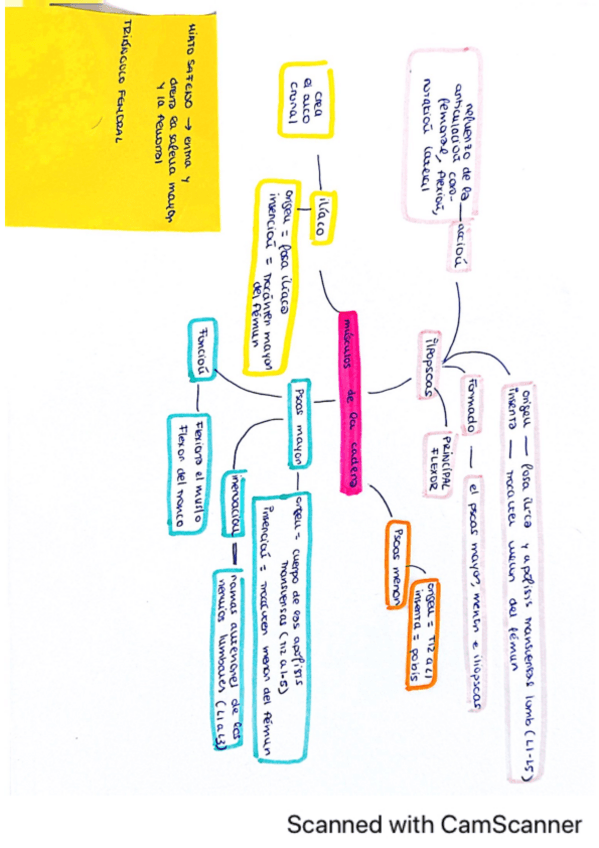 HIATO SAFENO → entra y
drena la safena mayor
y la femoral
TRIÁNGULO FEMORAL
crea
el arco
crural
ilíaco
origen = fosa ilíaca
inserción = trocánter mayor
del fémur
refuerzo de la
articulación coxo-
femoral, flexión,
rotación lateral
acción
músculos de la cadera
iliopsoas
PRINCIPAL
FLEXOR
Formado — el psoas mayor, menor e iliopsoas
origen — fosa ilíaca y apófisis transversas lumb (L1-L5)
inserta — trocánter menor del fémur
Psoas menor
origen = T12 a L1
inserta = pubis
Psoas mayor
origen = cuerpo de las apófisis
transversas (T12 a L5)
inserción = trocánter menor del fémur
inervación — ramas anteriores de los
nervios lumbares (L1 a L3)
Función
Flexiona el muslo
Flexor del tronco
Scanned with CamScanner